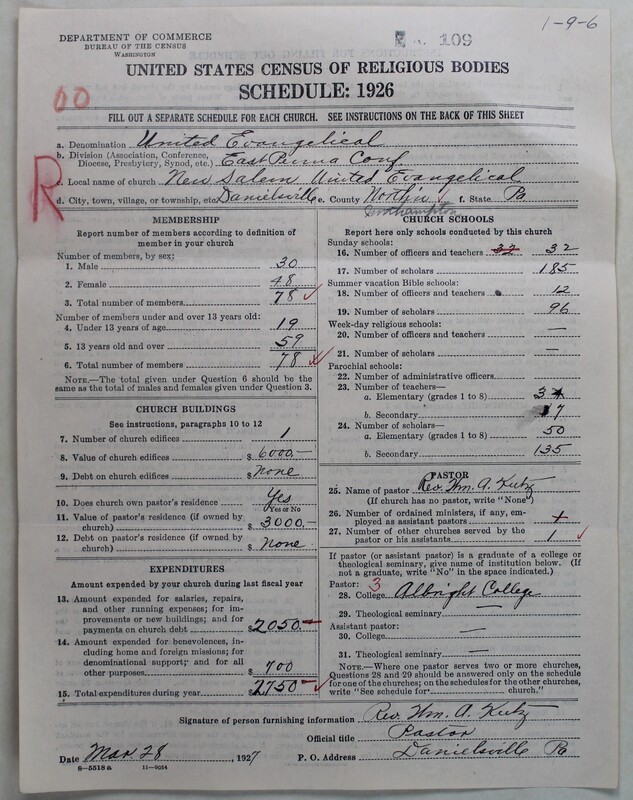 1-9-6
DEPARTMENT OF COMMERCE
BUREAU OF THE CENSUS
WASHINGTON
109
UNITED STATES CENSUS OF RELIGIOUS BODIES
SCHEDULE: 1926
00
FILL OUT A SEPARATE SCHEDULE FOR EACH CHURCH. SEE INSTRUCTIONS ON THE BACK OF THIS SHEET
R
a. Denomination United Evangelical
b. Division (Association, Conference, Diocese, Presbytery, Synod, etc.) East Penna Conf.
c. Local name of church New Salem United Evangelical
d. City, town, village, or township, etc. Danielsville e. County North'n f. State Pa
Northampton
MEMBERSHIP
Report number of members according to definition of member in your church
Number of members, by sex:
1. Male 30
2. Female 48
3. Total number of members 78
Number of members under and over 13 years old:
4. Under 13 years of age 19
5. 13 years old and over 59
6. Total number of members 78
NOTE.—The total given under Question 6 should be the same as the total of males and females given under Question 3.
CHURCH BUILDINGS
See instructions, paragraphs 10 to 12
7. Number of church edifices 1
8. Value of church edifices $ 6000.—
9. Debt on church edifices $ None
10. Does church own pastor's residence Yes
Yes or No
11. Value of pastor's residence (if owned by church) $ 3000.—
12. Debt on pastor's residence (if owned by church) $ None
EXPENDITURES
Amount expended by your church during last fiscal year
13. Amount expended for salaries, repairs, and other running expenses; for improvements or new buildings; and for payments on church debt $ 2050.—
14. Amount expended for benevolences, including home and foreign missions; for denominational support; and for all other purposes $ 700
15. Total expenditures during year $ 2750—
CHURCH SCHOOLS
Report here only schools conducted by this church
Sunday schools:
16. Number of officers and teachers 32 32
17. Number of scholars 185
Summer vacation Bible schools:
18. Number of officers and teachers 12
19. Number of scholars 96
Week-day religious schools:
20. Number of officers and teachers —
21. Number of scholars —
Parochial schools:
22. Number of administrative officers
23. Number of teachers—
a. Elementary (grades 1 to 8) 3
b. Secondary 7
24. Number of scholars—
a. Elementary (grades 1 to 8) 50
b. Secondary 135
PASTOR
25. Name of pastor Rev. Wm. A. Kutz
(If church has no pastor, write "None")
26. Number of ordained ministers, if any, employed as assistant pastors
27. Number of other churches served by the pastor or his assistants 1
If pastor (or assistant pastor) is a graduate of a college or theological seminary, give name of institution below. (If not a graduate, write "No" in the space indicated.)
Pastor: 3
28. College Albright College
29. Theological seminary —
Assistant pastor:
30. College —
31. Theological seminary —
NOTE.—Where one pastor serves two or more churches, Questions 28 and 29 should be answered only on the schedule for one of the churches; on the schedules for the other churches, write "See schedule for church."
Signature of person furnishing information Rev. Wm. A. Kutz
Official title Pastor
Date Mar 28, 1927 P. O. Address Danielsville Pa
8—5518 a 11—9054